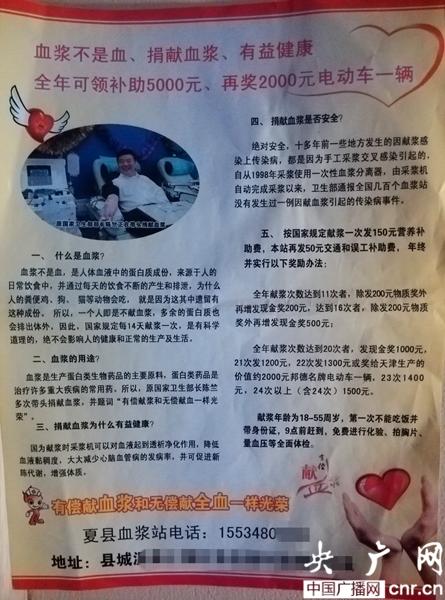 血浆不是血、捐献血浆、有益健康
全年可领补助5000元、再奖2000元电动车一辆
原国家卫生部部长陈竺正在带头捐献血浆
一、 什么是血浆?
血浆不是血，是人体血液中的蛋白质成份，来源于人的
日常饮食中，并通过每天的饮食不断的产生和排泄，为什么
人的粪便鸡、狗、猫等动物会吃，就是因为这其中遗留有
这种成份。所以，一个人即是不献血浆，多余的蛋白质也
会排出体外，因此，国家规定每14天献浆一次，是有科学
道理的，绝不会影响人的健康和正常的生产及生活。
二、血浆的用途?
血浆是生产蛋白类生物药品的主要原料，蛋白类药品是
治疗许多重大疾病的常用药。所以，原国家卫生部长陈竺
多次带头捐献血浆，并题词“有偿献浆和无偿献血一样光
荣”。
三、捐献血浆为什么有益健康?
因为献浆时采浆机可以对血液起到透析净化作用，降低
血液黏稠度，大大减少心脑血管病的发病率，并可促进新
陈代谢，增强体质。
四、 捐献血浆是否安全?
绝对安全，十多年前一些地方发生的因献浆感
染上传染病，都是因为手工采浆交叉感染引起的，
自从1998年采浆使用一次性血浆分离器，由采浆机
自动完成采浆以来，卫生部通报全国几百个血浆站
没有发生过一例因献血浆引起的传染病事件。
五、 按国家规定献浆一次发150元营养补
助费，本站再发50元交通和误工补助费，年终
并实行以下奖励办法:
全年献浆次数达到11次者，除发200元物质奖外
再增发现金奖200元，达到16次者，除发200元物质
奖外再增发现金奖500元;
全年献浆次数达到20次者，发现金奖1000元，
21次发1200元，22次发1300元或奖给天津生产的
价值约2000元邦德名牌电动车一辆，23次1400
元，24次以上（含24次）1500元。
献浆年龄为18-55周岁，第一次不能吃饭并
带身份证，9点前赶到，免费进行化验、拍胸片、
量血压等全面体检。
有偿献血浆和无偿献全血一样光荣
夏县血浆站电话：1553480
地址：县城
央广网
中国广播网 cnr.cn